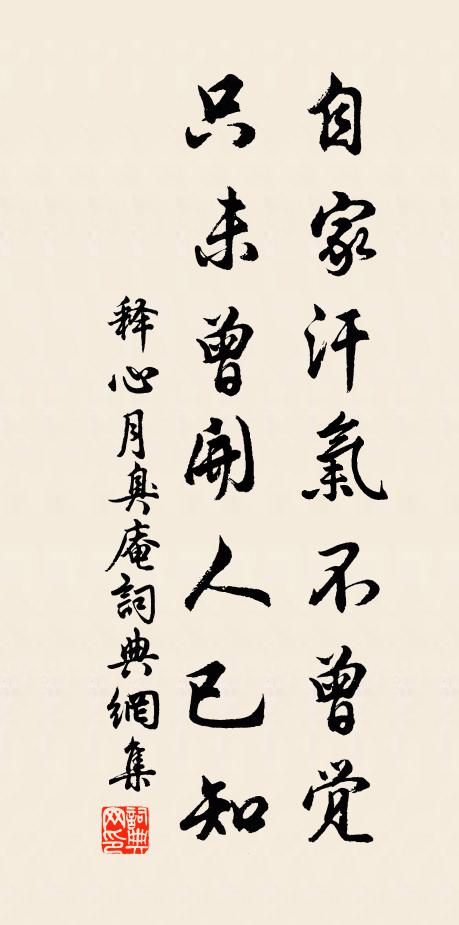 自家汗氣不曾觉
只未曾開人已知
释心月奥庵詞典網集
詞典网印